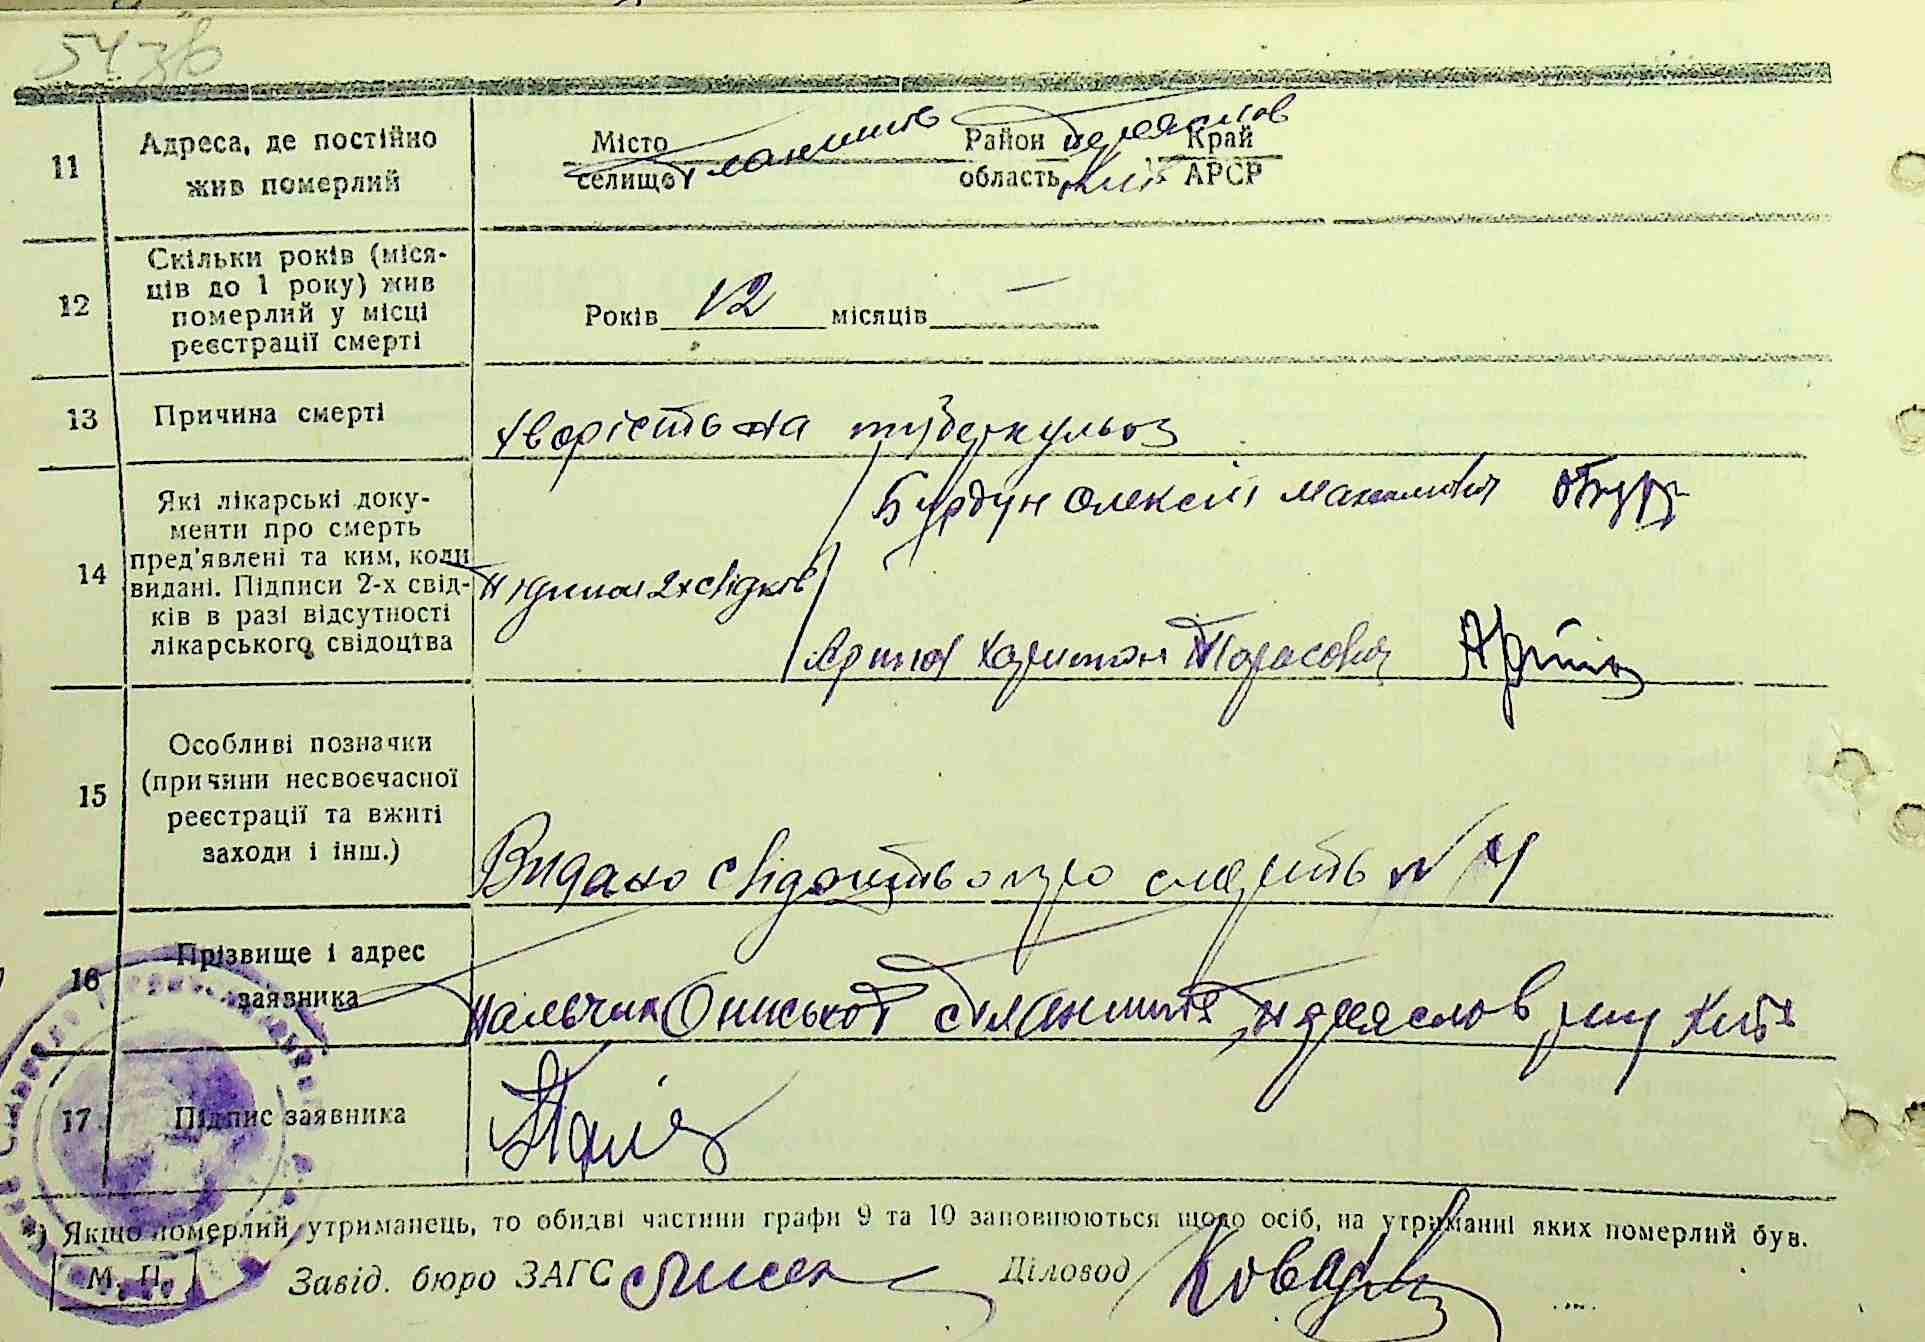 54 зв
11
Адреса, де постійно
жив померлий
Місто Район Переяслов Край
селище область Київ АРСР
12
Скільки років (міся-
ців до 1 року) жив
померлий у місці
реєстрації смерті
Років 12 місяців —
13
Причина смерті
хворість на туберкульоз
14
Які лікарські доку-
менти про смерть
пред'явлені та ким, коли
видані. Підписи 2-х свід-
ків в разі відсутності
лікарського свідоцтва
Підписи 2х свідків
Бурдун Олексій
Харитон Тарасович
15
Особливі позначки
(причини несвоєчасної
реєстрації та вжиті
заходи і інш.)
Видано свідоцтво про смерть N 4
16
Прізвище і адрес
заявника
Пальчик Переяслов р-ну Київ
17
Підпис заявника
*) Якщо померлий утриманець, то обидві частини графи 9 та 10 заповнюються щодо осіб, на утриманні яких померлий був.
М. П.
Завід. бюро ЗАГС
Діловод